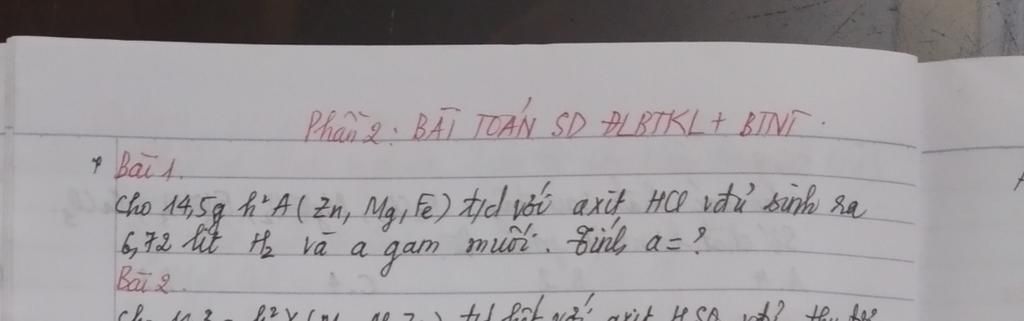 Phần 2: BÀI TOÁN SD ĐLBTKL + BTNT.
Bài 1.
Cho 14,5g h² A (Zn, Mg, Fe) t/d với axit HCl vđủ sinh ra
6,72 lít H₂ và a gam muối. Tính a = ?
Bài 2.